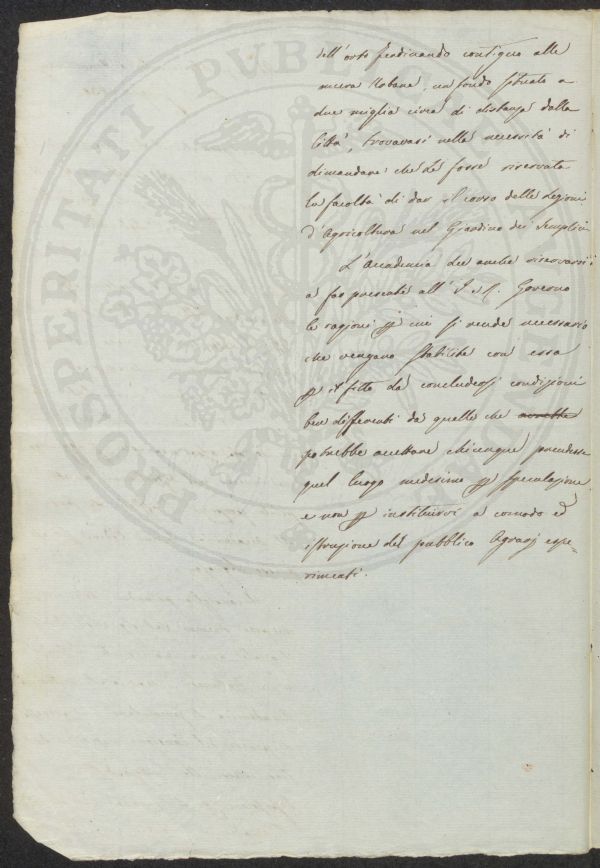 dell'orto ferdinando contiguo alle
mura Urbane, un fondo situato a
due miglia circa di distanza dalla
Città, trovavasi nella necessità di
dimandare che Le fosse riservata
la facoltà di dar il corso delle Lezioni
d'Agricoltura nel Giardino dei Semplici.
L'Accademia dee anche riservarsi
a far presente all'I. e R. Governo
le ragioni p cui si rende necessario
che vengano stabilite con essa
p il fitto da concludersi condizioni
ben differenti da quelle che
potrebbe accettare chiunque prendesse
quel luogo medesimo p speculazione
e non p instituirvi a comodo ed
istruzione del pubblico Agrarj espe=
rimenti.
PROSPERITATI PUBLICAE